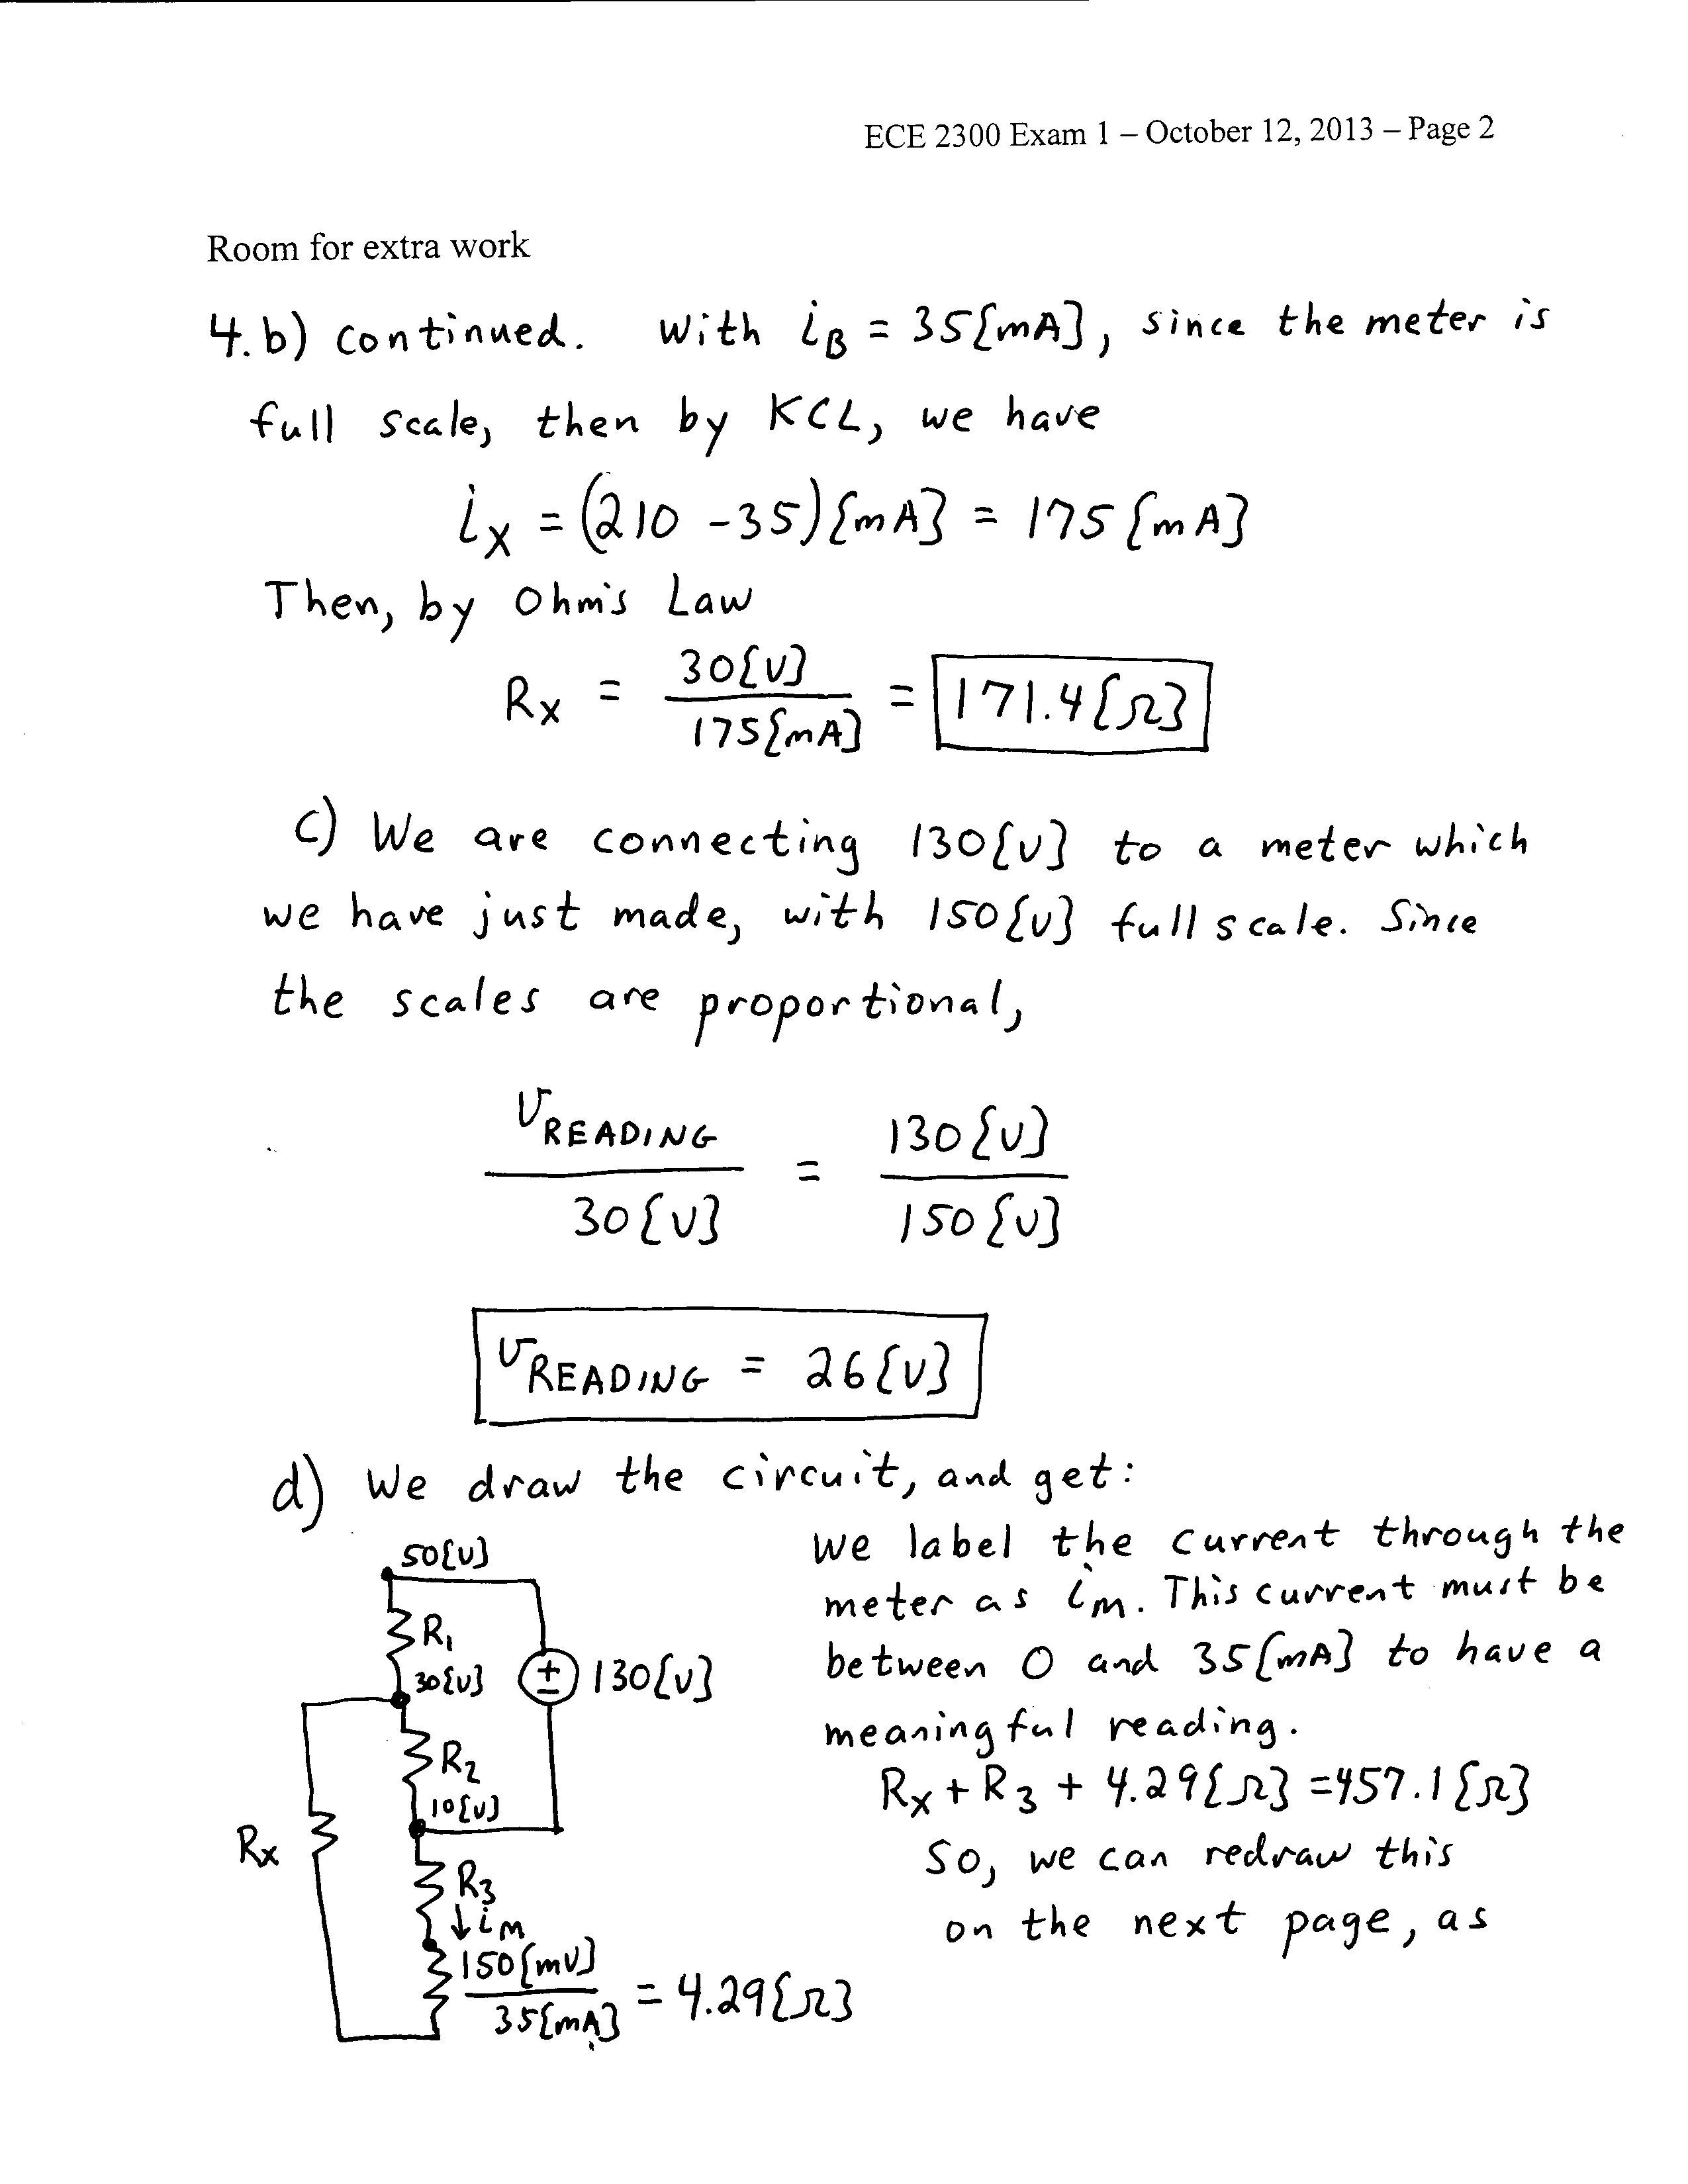 ECE 2300 Exam 1 – October 12, 2013 – Page 2
Room for extra work
4.b) continued. With iB = 35[mA], since the meter is
full scale, then by KCL, we have
iX = (210 - 35)[mA] = 175[mA]
Then, by Ohm's Law
RX = 30[V] / 175[mA] = 171.4[Ω]
c) We are connecting 130[V] to a meter which
we have just made, with 150[V] full scale. Since
the scales are proportional,
vREADING / 30[V] = 130[V] / 150[V]
vREADING = 26[V]
d) We draw the circuit, and get:
We label the current through the
meter as im. This current must be
between 0 and 35[mA] to have a
meaningful reading.
RX + R3 + 4.29[Ω] = 457.1[Ω]
So, we can redraw this
on the next page, as
50[V]
R1
30[V]
130[V]
R2
10[V]
RX
R3
↓im
150[mV] / 35[mA] = 4.29[Ω]